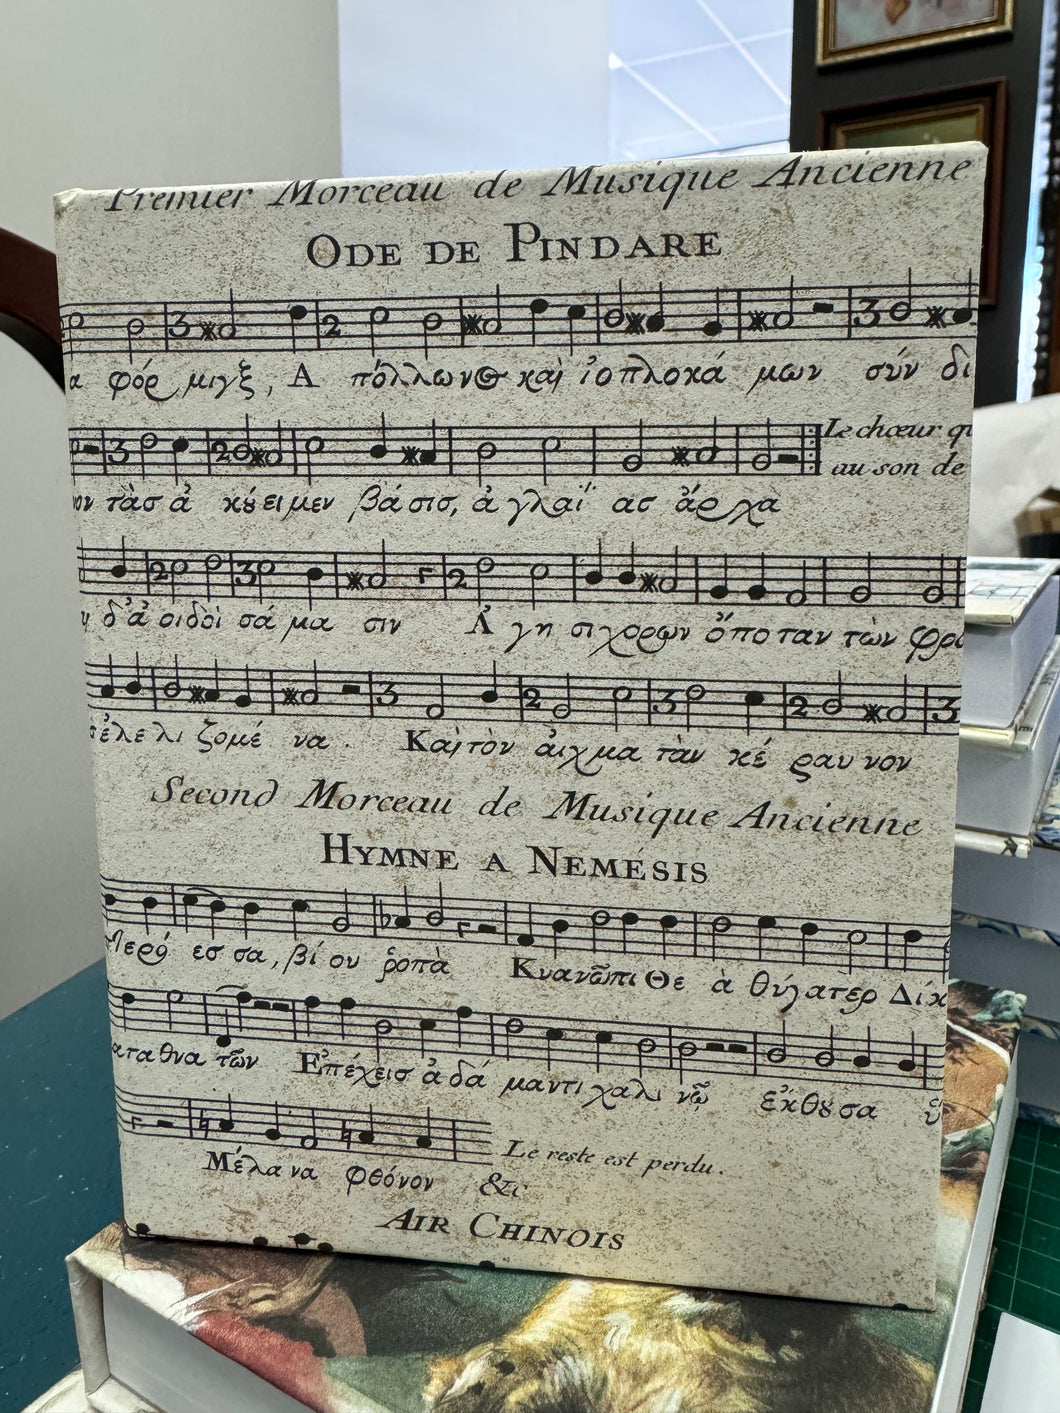 Premier Morceau de Musique Ancienne
ODE DE PINDARE
α φόρ μιγξ, Α πόλλωνος και ἰοπλοκά μων σύν δι
τᾶσ ἀ κȣει μεν βά σισ, ἀ γλαΐ ασ ἄρ χα
Le chœur qu
au son de
δ'ἀ οιδοὶ σά μα σιν Ἁ γη σιχορων ὁπο ταν τῶν φρο
ἐλε λι ζομέ να . Και τὸν ἀιχμα τὰν κέ ραυ νον
Second Morceau de Musique Ancienne
HYMNE A NEMÉSIS
Πτερό εσ σα, βί ου ῥοπὰ Κυανῶπι Θε ὰ θύγατερ Δίκ
ατα θνα τῶν Επέχεισ ἀ δά μαντι χαλι νῷ ἐκθȣσα
Μέλα να φθόνον &c
Le reste est perdu.
AIR CHINOIS